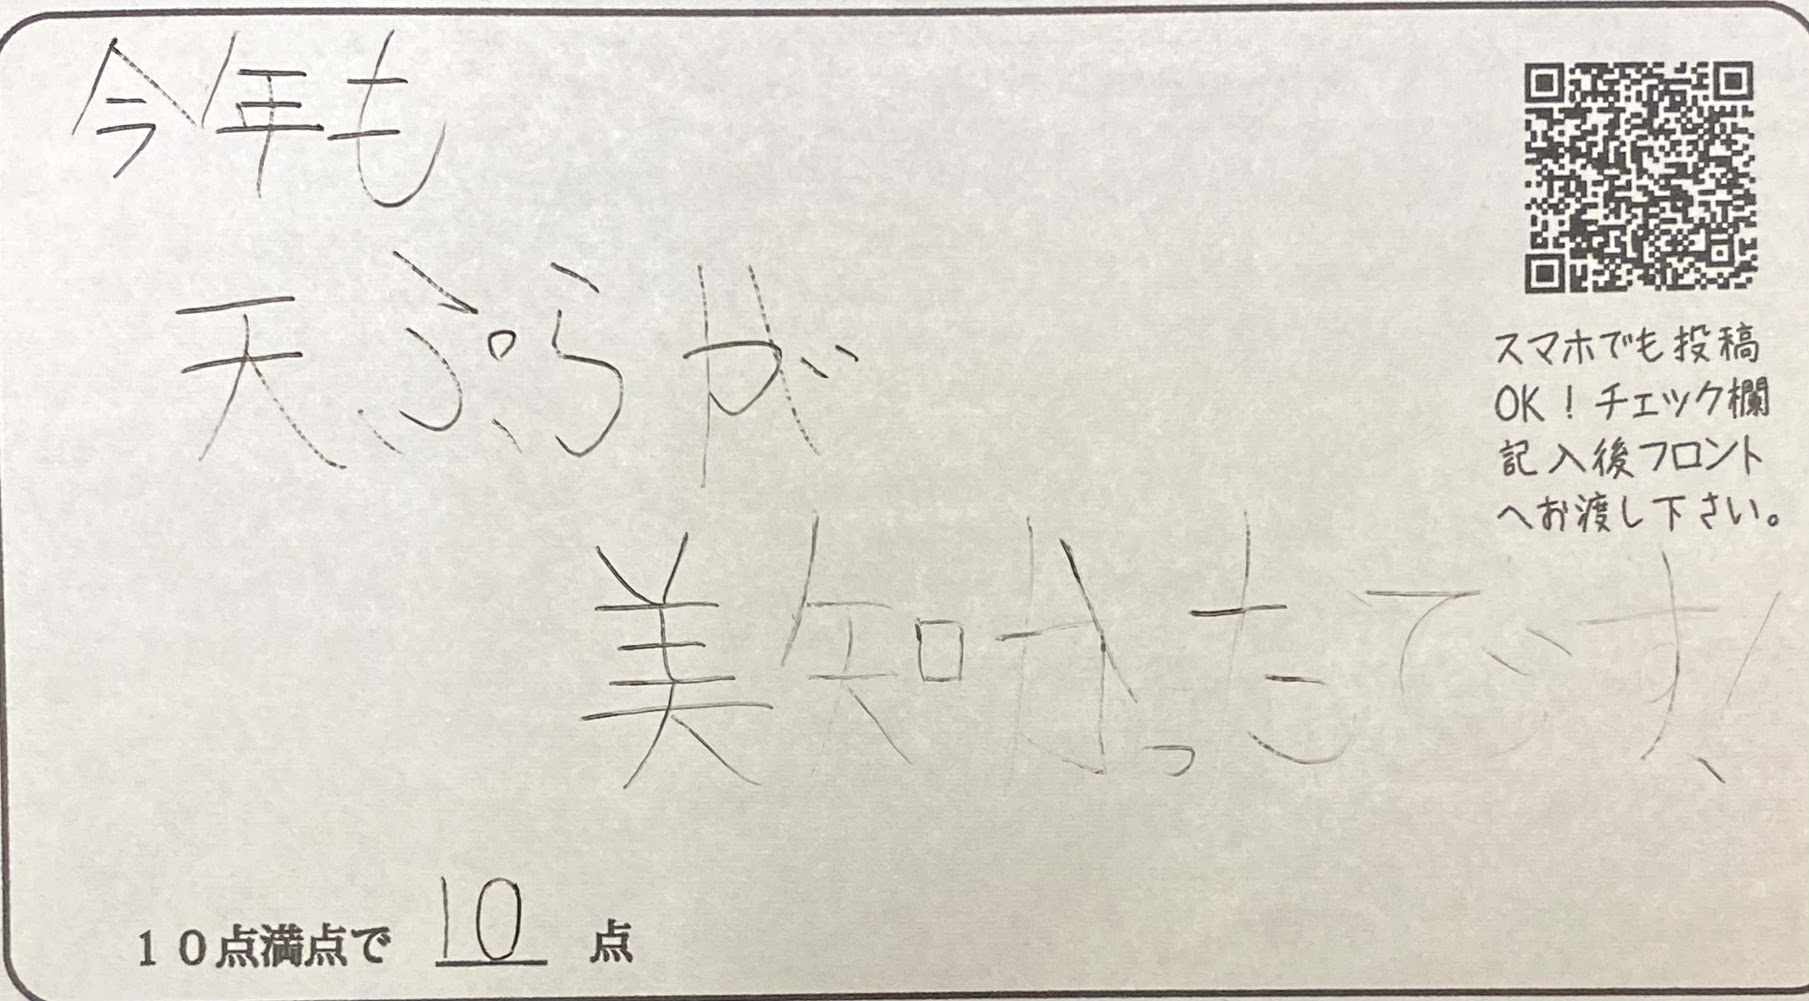 今年も
天ぷらが
美知かったです!
スマホでも投稿
OK!チェック欄
記入後フロント
へお渡し下さい。
10点満点で 10 点